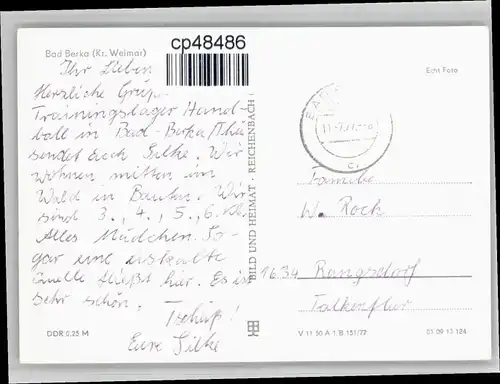 Bad Berka (Kr. Weimar)
cp48486
Echt Foto
Ihr Lieben
Herzliche Grüße
Trainingslager Hand-
ball in Bad-Berka/Thü
sendet Euch Silke. Wir
wohnen mitten im
Wald in Bauten. Wir
sind 3., 4., 5., 6. Kl.
Alles Mädchen. So-
gar eine eiskalte
Quelle fließt hier. Es ist
sehr schön.
Tschüß!
Eure Silke
BILD UND HEIMAT · REICHENBACH
Familie
W. Rock
1634 Rangsdorf
Falkenflur
DDR 0,25 M
V 11 50 A 1/B 151/77
01 09 13 124